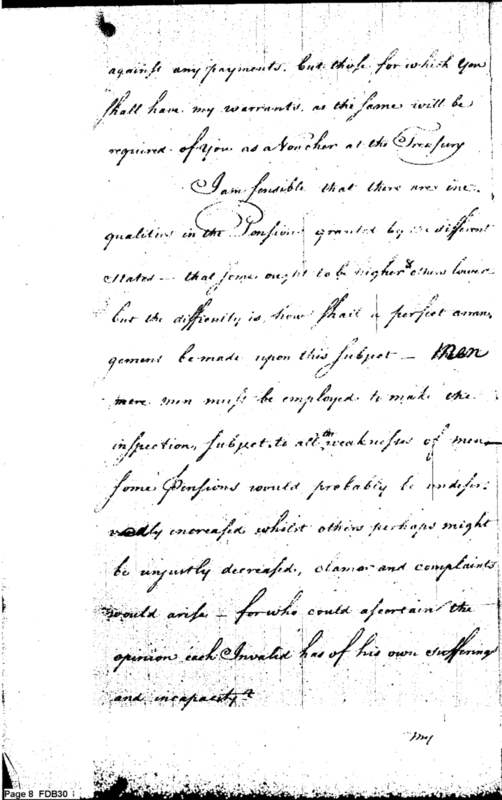 against any payments. but those for which you
shall have my warrants. as the same will be
required of you as a Voucher at the Treasury
I am sensible that there are ine
qualities in the Pensions granted by the different
States – that some ought to be higher & others lower
but the difficulty is, how shall a perfect arran,
gement be made upon this subject – Men
mere men must be employed to make the
inspection, subject to all the weaknesses of men –
some Pensions would probably be undeser-
vedly increased whilst others perhaps might
be unjustly decreased, clamor and complaints
would arise – for who could ascertain the
opinion each Invalid has of his own suffering
and incapacity?
my
Page 8 FDB30